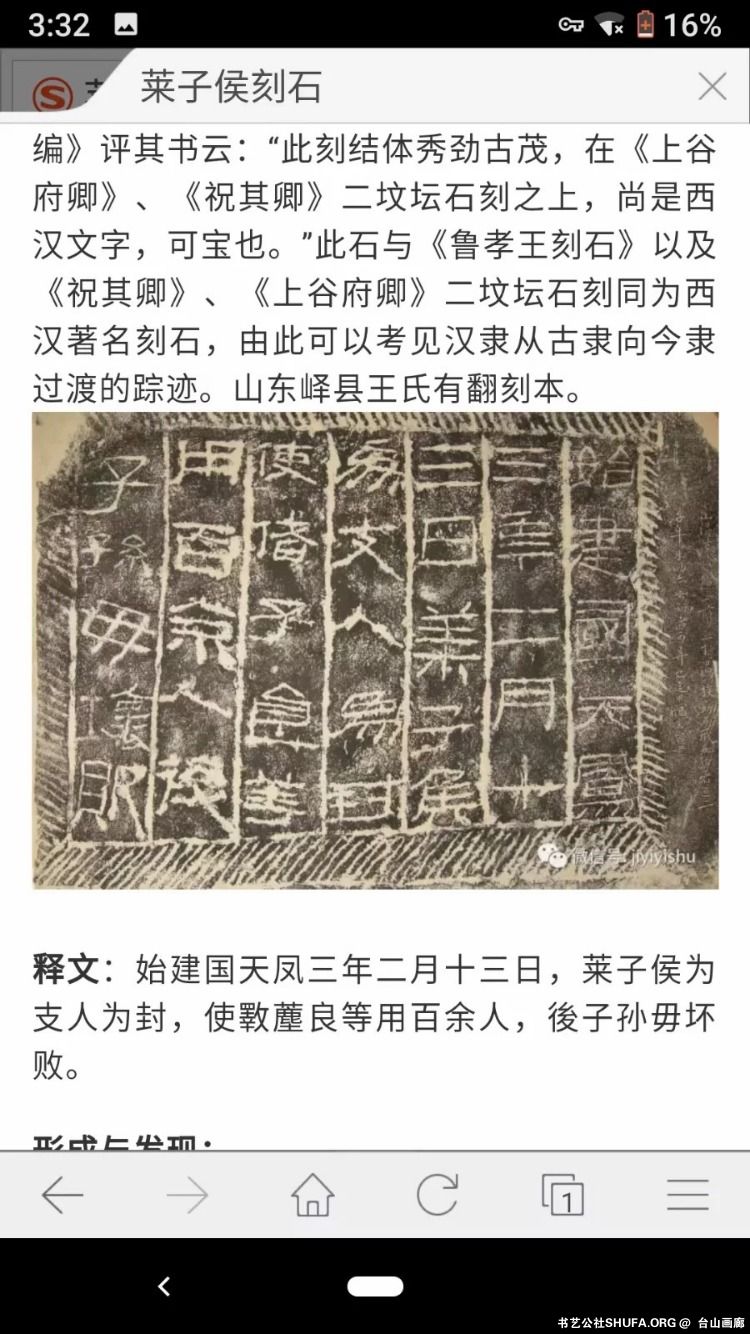 3:32
16%
莱子侯刻石
编》评其书云：“此刻结体秀劲古茂，在《上谷
府卿》、《祝其卿》二坟坛石刻之上，尚是西
汉文字，可宝也。”此石与《鲁孝王刻石》以及
《祝其卿》、《上谷府卿》二坟坛石刻同为西
汉著名刻石，由此可以考见汉隶从古隶向今隶
过渡的踪迹。山东峄县王氏有翻刻本。
始建國天鳳
三年二月十
三日萊子侯
為支人為封
使偖子食等
用百余人後
子孫毋壞敗
微信号: jiyiyishu
释文：始建国天凤三年二月十三日，莱子侯为
支人为封，使斁蘆良等用百余人，後子孙毋坏
败。
形成与发现：
1
书艺公社SHUFA.ORG @ 台山画廊